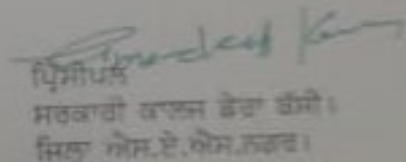 ਪ੍ਰਿੰਸੀਪਲ
ਸਰਕਾਰੀ ਕਾਲਜ ਡੇਰਾ ਬੱਸੀ।
ਜਿਲਾ ਐਸ.ਏ.ਐਸ.ਨਗਰ।